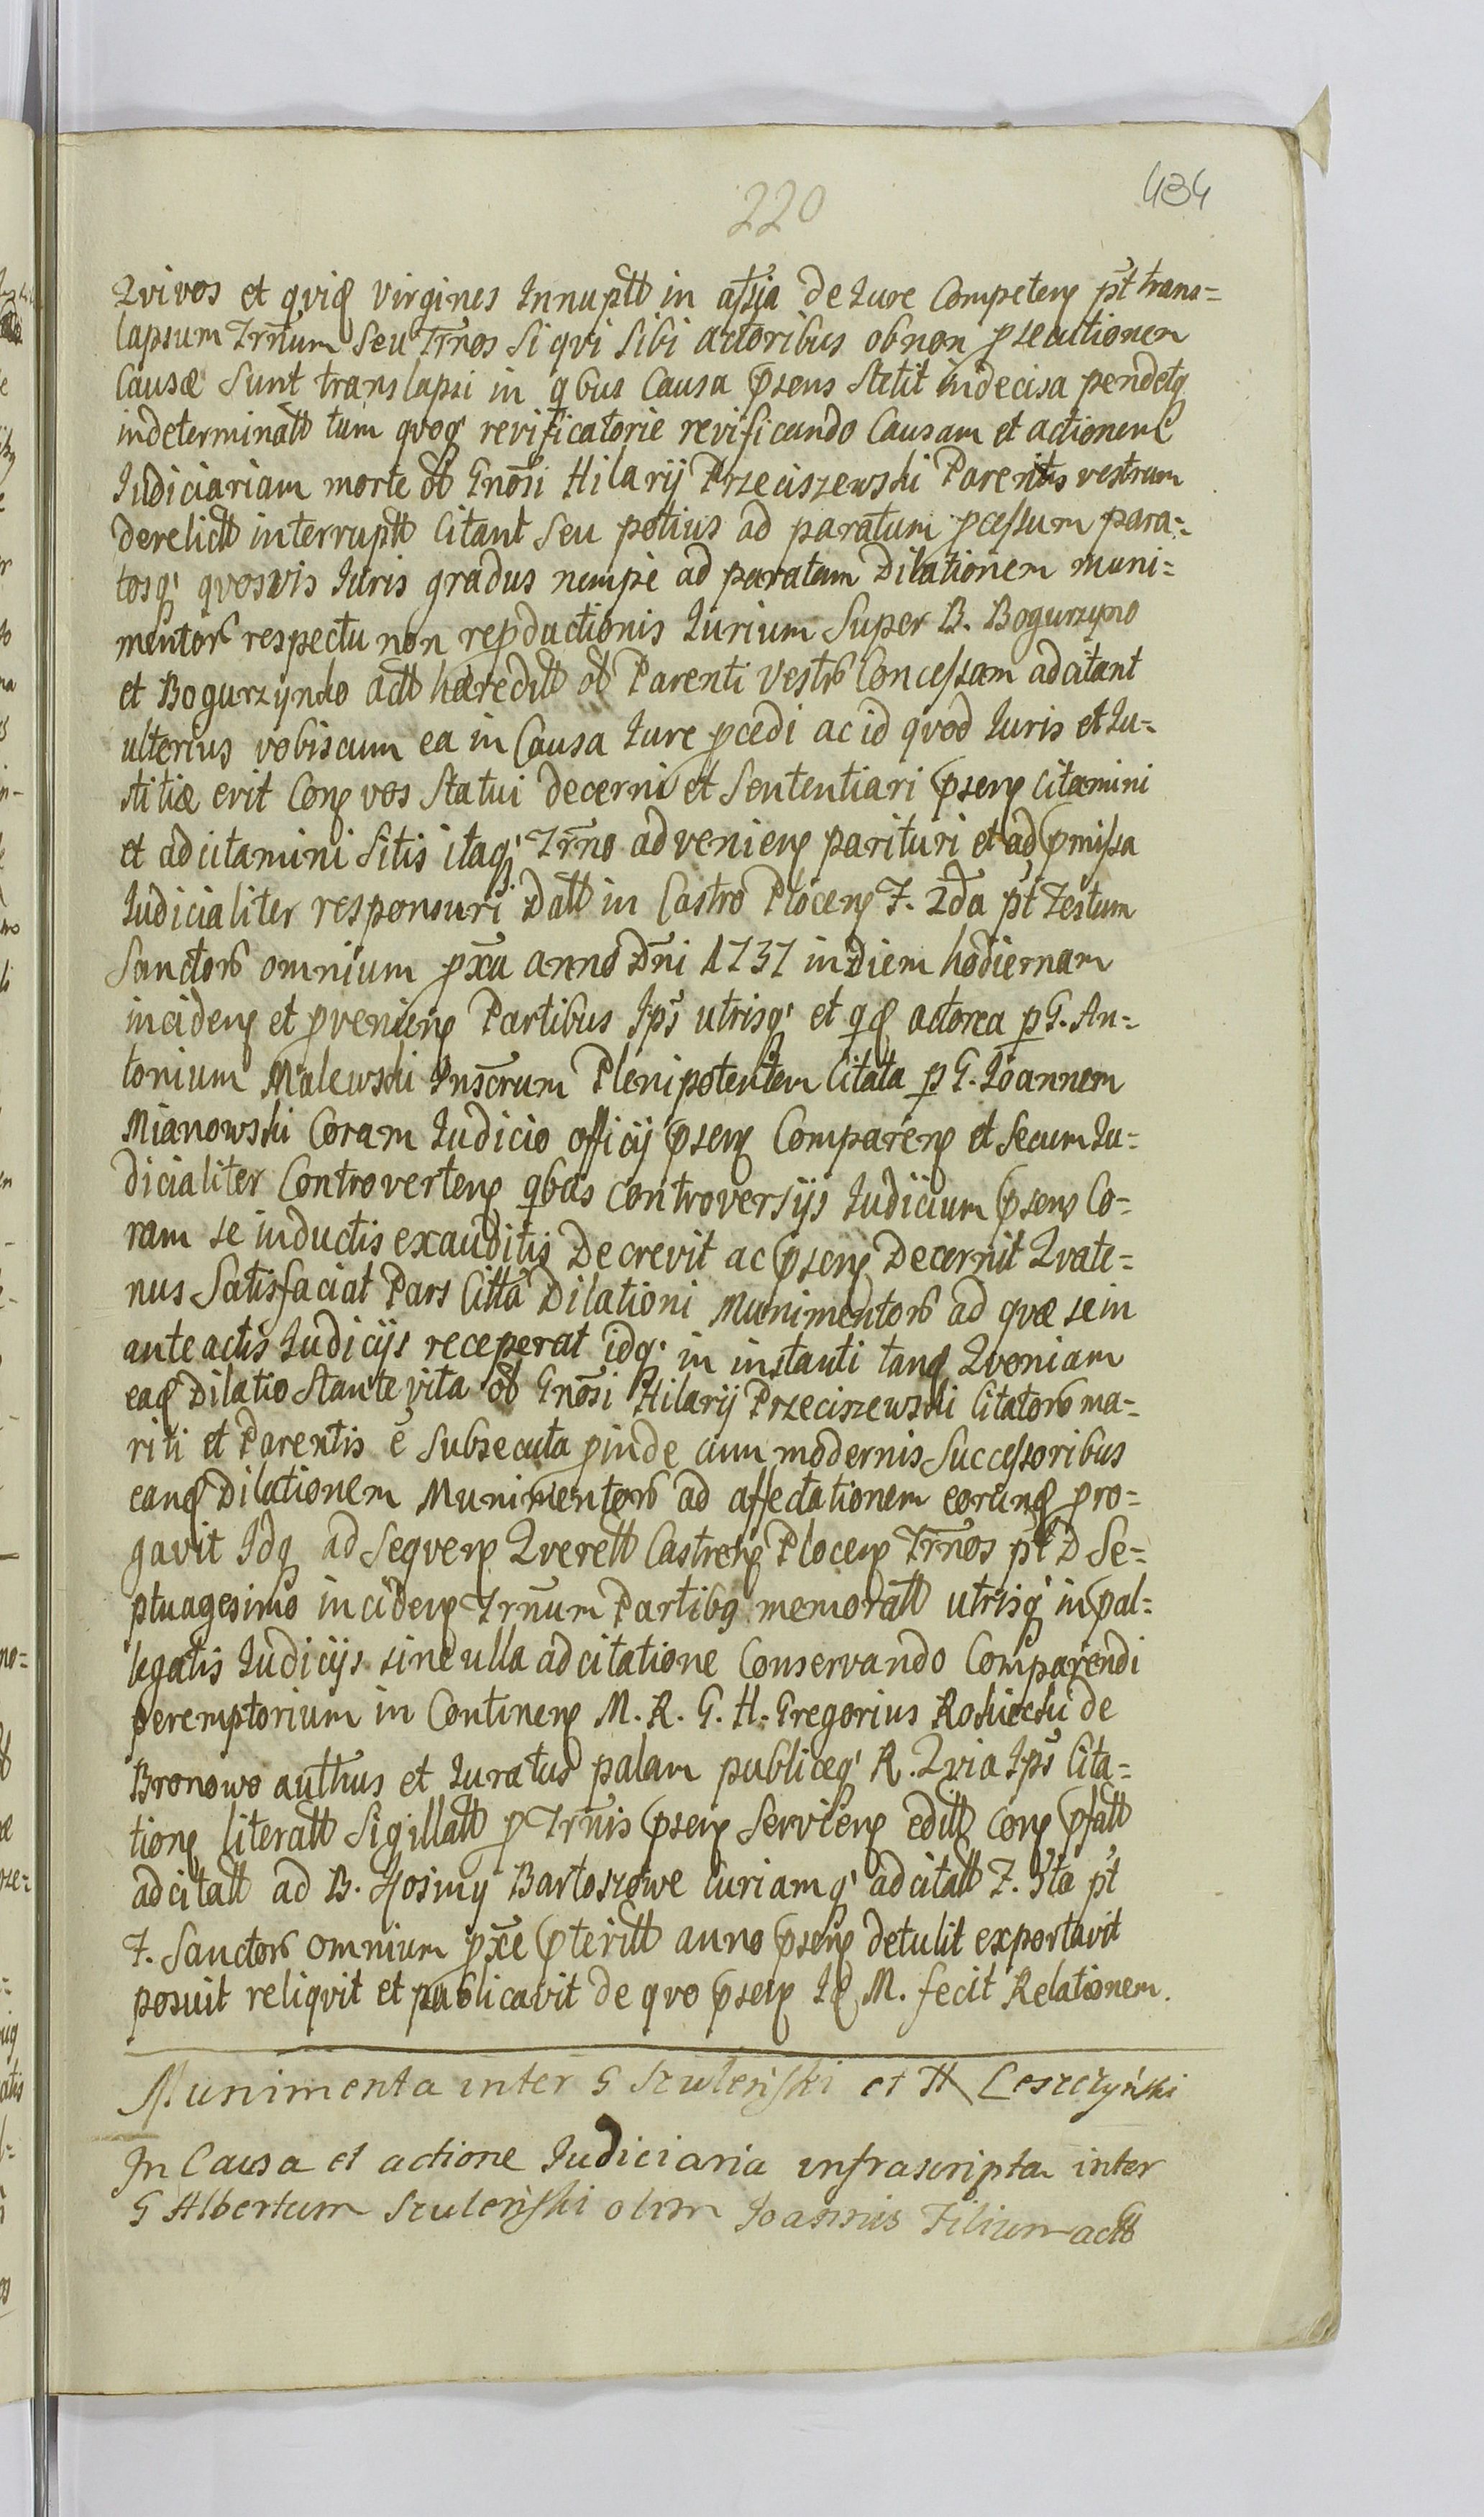 220
434
Qvivos et qviđ Virgines Innuptt in assia de Iure Competenʒ pt̄ trans=
lapsum Trn̄um seu Trn̄os si qvi sibi actoribus ob non psecutionem
Causæ sunt translapsi in qbus Causa psens stetit indecisa pendetq
indeterminatt tum qvoq' revificatorie revificando Causam et actionem
Iudiciariam morte ob Gnōsi Hilarij Przeciszewski Parentis vestrum
derelictt interruptt Citant seu potius ad paratum pcessum para=
tosq' qvosvis Iuris gradus nempe ad paratam Dilationem muni=
mentor respectu non repductionis Iurium super B. Bogurzyno
et Bogurzynko actt hæreditt ob Parenti vestro Concessam adcitant
ulterius vobiscum ea in Causa Iure pcedi ac id qvod Iuris et Iu=
stitiæ erit Conʒ vos statui decerni et sententiari psenʒ Citamini
et adcitamini sitis itaq' Trn̄o advenienʒ parituri et ad pmissa
Iudicialiter responsuri Datt in Castro Plocenʒ F. 2da pt̄ Festum
Sanctor omnium px̄a anno Dn̄i 1737 in Diem hodiernam
incidenʒ et pvenienʒ Partibus Ips̄ utrisq' et qđ actorea p G. An=
tonium Malewski Insc̄rum Plenipotentem Citata p G. Ioannem
Mianowski Coram Iudicio officij psenʒ Comparenʒ et secum Iu=
dicialiter Controvertenʒ qbus controversijs Iudicium psens Co=
ram se inductis exauditis Decrevit ac psenʒ Decernit Qvate=
nus satisfaciat Pars Citta Dilationi Munimentor ad qvæ se in
anteactis Iudicijs receperat idq' in instanti tanđ Qvoniam
eađ Dilatio stante vita ob Gnōsi Hilarij Przeciszewski Citator ma=
riti et Parentis ē subsecuta pinde cum modernis successoribus
eanđ Dilationem Munimentor ad affectationem eorunđ pro=
gavit Idq ad seqvenʒ Qverell Castrenʒ Plocenʒ Trn̄os pt̄ D Se=
ptuagesimo incidenʒ Trn̄um Partibq memoratt utrisq' in pal=
legatis Iudicijs sine ulla adcitatione Conservando Comparendi
peremptorium in Continenʒ M. R. G. H. Gregorius Rokicki de
Bronowo authus et Iuratus palam publiceq' R. Qvia Ips̄ Cita=
tionʒ literatt sigillatt p Trn̄is psenʒ servienʒ editt Conʒ pfatt
adcitatt ad B. Kosiny Bartoszowe Curiamq' adcitatt F. 5ta pt̄
F. Sanctor omnium px̄e pteritt anno psenʒ detulit exportavit
posuit reliqvit et publicavit de qvo psenʒ Iđ M. fecit Relationem.
Munimenta inter G Szuleński et H Leszczyński
In Causa et actione Iudiciaria infrascripta inter
G Albertum Szuleński olim Ioannis Filium actt